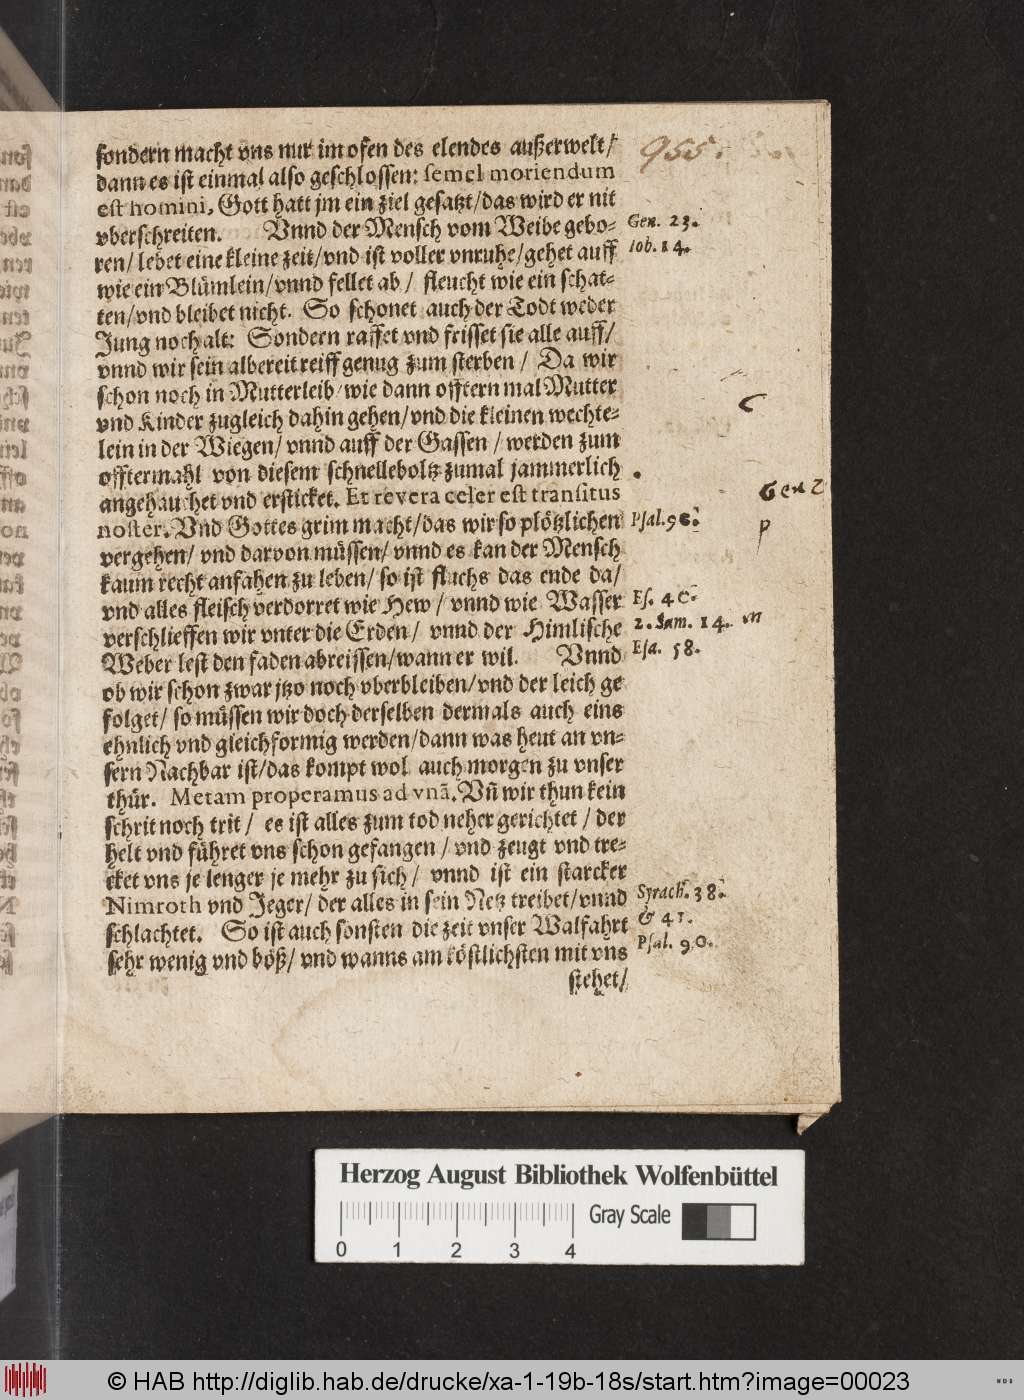 sondern macht vns nur im ofen des elendes außerwelt/
dann es ist einmal also geschlossen: semel moriendum
est homini, Gott hatt jm ein ziel gesatzt/das wird er nit
vberschreiten. Vnnd der Mensch vom Weibe gebo-
ren/ lebet eine kleine zeit/vnd ist voller vnruhe/gehet auff
wie ein Blümlein/vnnd fellet ab/ fleucht wie ein schat-
ten/vnd bleibet nicht. So schonet auch der Todt weder
Jung noch alt: Sondern raffet vnd frisset sie alle auff/
vnnd wir sein albereit reiff genug zum sterben/ Da wir
schon noch in Mutterleib/wie dann offtern mal Mutter
vnd Kinder zugleich dahin gehen/vnd die kleinen wechte-
lein in der Wiegen/ vnnd auff der Gassen/ werden zum
offtermahl von diesem schnelleboltz zumal jammerlich
angehauchet vnd ersticket. Et revera celer est transitus
noster. Vnd Gottes grim macht/das wir so plötzlichen
vergehen/ vnd darvon müssen/ vnnd es kan der Mensch
kaum recht anfahen zu leben/ so ist fluchs das ende da/
vnd alles fleisch verdorret wie Hew/ vnnd wie Wasser
verschlieffen wir vnter die Erden/ vnnd der Himlische
Weber lest den faden abreissen/wann er wil. Vnnd
ob wir schon zwar jtzo noch vberbleiben/vnd der leich ge
folget/ so müssen wir doch derselben dermals auch eins
ehnlich vnd gleichformig werden/dann was heut an vn-
sern Nachbar ist/das kompt wol auch morgen zu vnser
thür. Metam properamus ad vnã. Vñ wir thun kein
schrit noch trit/ es ist alles zum tod neher gerichtet/ der
helt vnd führet vns schon gefangen/ vnd zeugt vnd tre-
cket vns je lenger je mehr zu sich/ vnnd ist ein starcker
Nimroth vnd Jeger/ der alles in sein Netz treibet/vnnd
schlachtet. So ist auch sonsten die zeit vnser Walfahrt
sehr wenig vnd böß/ vnd wanns am köstlichsten mit vns
stehet/
955.
Gen. 23.
Iob. 14.
C
Gen 2
p
Psal. 90.
Es. 40.
2. Sam. 14.
Esa. 58.
Syrach. 38.
& 41.
Psal. 90.
Herzog August Bibliothek Wolfenbüttel
Gray Scale
0 1 2 3 4
© HAB http://diglib.hab.de/drucke/xa-1-19b-18s/start.htm?image=00023